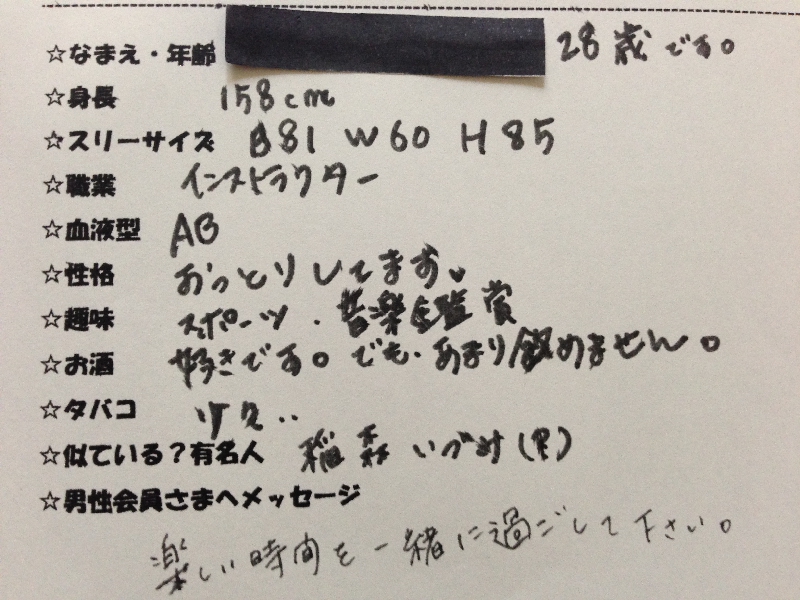 ☆なまえ・年齢 28歳です。
☆身長 158cm
☆スリーサイズ B81 W60 H85
☆職業 インストラクター
☆血液型 AB
☆性格 おっとりしてます♥
☆趣味 スポーツ.音楽鑑賞
☆お酒 好きです。でも.あまり飲めません。
☆タバコ 少々..
☆似ている?有名人 稲森いづみ(笑)
☆男性会員さまへメッセージ
楽しい時間を一緒に過ごして下さい。